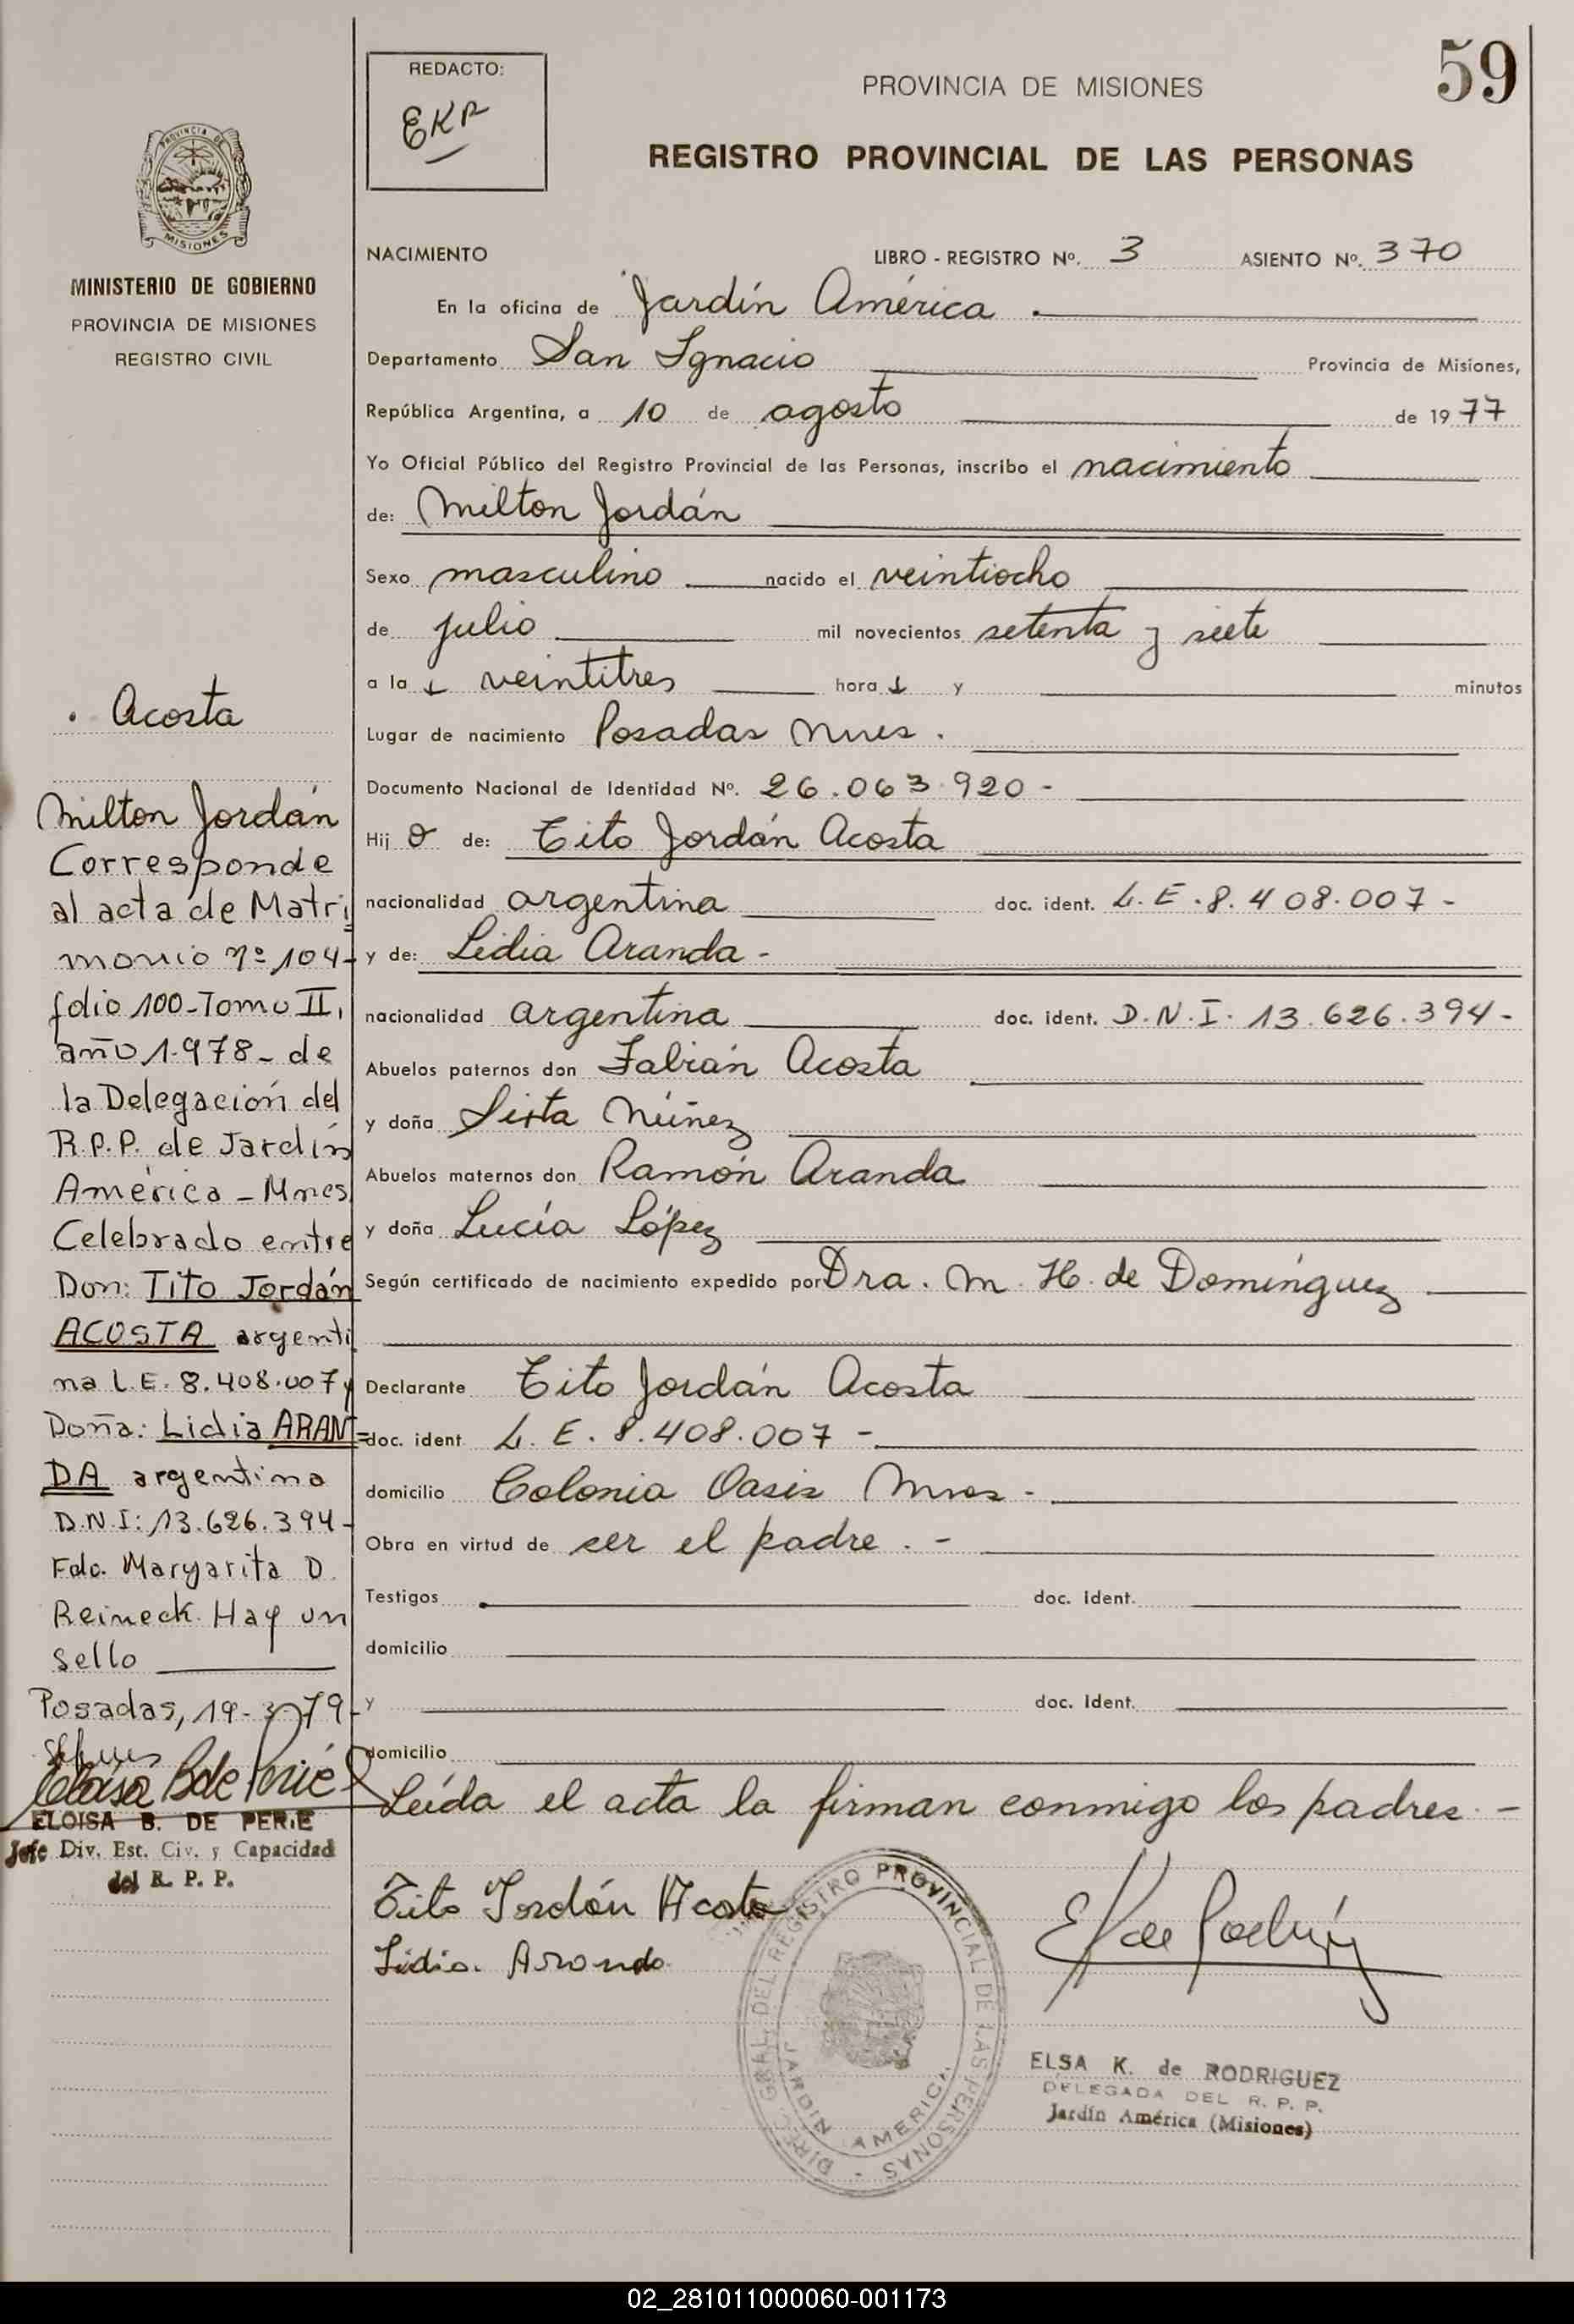 59
REDACTO:
EKR
PROVINCIA DE MISIONES
REGISTRO PROVINCIAL DE LAS PERSONAS
PROVINCIA DE
MISIONES
MINISTERIO DE GOBIERNO
PROVINCIA DE MISIONES
REGISTRO CIVIL
NACIMIENTO LIBRO - REGISTRO Nº. 3 ASIENTO Nº. 370
En la oficina de Jardín América
Departamento San Ignacio Provincia de Misiones,
República Argentina, a 10 de agosto de 1977
Yo Oficial Público del Registro Provincial de las Personas, inscribo el nacimiento
de: Milton Jordán
Sexo masculino nacido el veintiocho
de julio mil novecientos setenta y siete
a la s veintitres hora s y minutos
Lugar de nacimiento Posadas Mnes.
Documento Nacional de Identidad Nº. 26.063.920-
Hij o de: Tito Jordán Acosta
nacionalidad argentina doc. ident. L.E.8.408.007-
y de: Lidia Aranda-
nacionalidad argentina doc. ident. D.N.I. 13.626.394-
Abuelos paternos don Fabián Acosta
y doña Sixta Núñez
Abuelos maternos don Ramón Aranda
y doña Lucía López
Según certificado de nacimiento expedido por Dra. M. H. de Domínguez
Declarante Tito Jordán Acosta
doc. ident L.E.8.408.007-
domicilio Colonia Oasis Mnes-
Obra en virtud de ser el padre.-
Testigos doc. ident.
domicilio
y doc. ident.
domicilio
Leída el acta la firman conmigo los padres.-
Tito Jordán Acosta
Lidia Aranda
DIREC. GRAL. DEL REGISTRO PROVINCIAL DE LAS PERSONAS
JARDIN AMERICA
ELSA K. de RODRIGUEZ
DELEGADA DEL R. P. P.
Jardín América (Misiones)
Acosta
Milton Jordán
Corresponde
al acta de Matri
monio nº 104-
folio 100-Tomo II,
año 1.978- de
la Delegación del
R.P.P. de Jardín
América - Mnes
Celebrado entre
Don: Tito Jordán
ACOSTA argenti
na L.E. 8.408.007 y
Doña: Lidia ARAN=
DA argentina
D.N.I: 13.626.394-
Fdo. Margarita D.
Reineck. Hay un
sello
Posadas, 19-3-79-
Eloisa B de Perié
ELOISA B. DE PERIE
Jefe Div. Est. Civ. y Capacidad
del R. P. P.
02_281011000060-001173